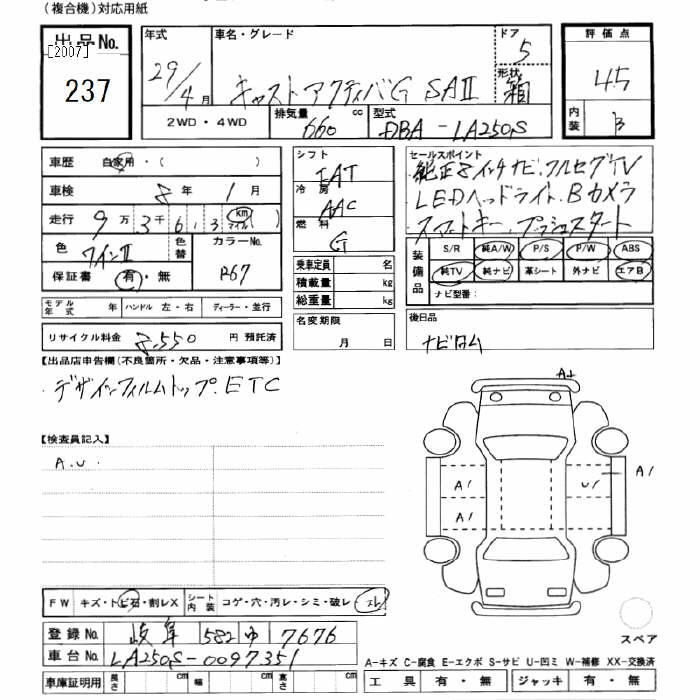 (複合機)対応用紙
出品No.
[2007]
237
年式
29/4月
車名・グレード
キャストアクティバG SAII
ドア
5
形状
箱
2WD・4WD
排気量
660 cc
型式
DBA-LA250S
評価点
4.5
内装
B
車歴 自家用・( )
車検 8年 1月
走行 9万3千613 km マイル( )
色 ワインII 色替
カラーNo. R67
保証書 有・無
モデル年式 年 ハンドル 左・右 ディーラー・並行
リサイクル料金 8,550 円 預託済
シフト
IAT
冷房
AAC
燃料
G
乗車定員 名
積載量 kg
総重量 kg
名変期限
月 日
セールスポイント
・純正8インチナビ.フルセグTV
LEDヘッドライト.Bカメラ
スマートキー.プッシュスタート
装備品
S/R 純A/W P/S P/W ABS
純TV 純ナビ 革シート 外ナビ エアB
ナビ型番:
後日品
ナビロム
【出品店申告欄(不良箇所・欠品・注意事項等)】
・デザインフィルムトップ.ETC
【検査員記入】
A.U.
A1
A1
A1
U1
A1
FW キズ・トビ石・割レX シート内装 コゲ・穴・汚レ・シミ・破レ・スレ
登録No. 岐阜 582 ゆ 7676
車台No. LA250S-0097351
車庫証明用 長さ cm 幅 cm 高さ cm
スペア
A-キズ C-腐食 E-エクボ S-サビ U-凹ミ W-補修 XX-交換済
工具 有・無 ジャッキ 有・無